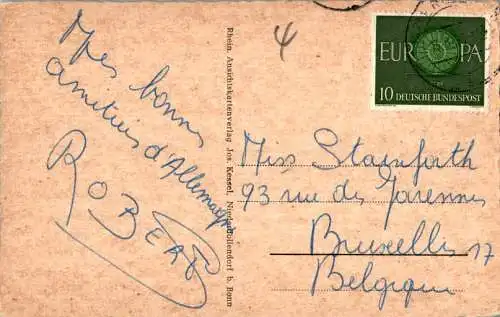 Mes bonnes
amitiés d'Allemagne
ROBERT
Rhein. Ansichtskartenverlag Jos. Kessel, Niederdollendorf b. Bonn
4
EUROPA
10 DEUTSCHE BUNDESPOST
Miss Stainforth
93 rue des Garennes
Bruxelles 17
Belgique